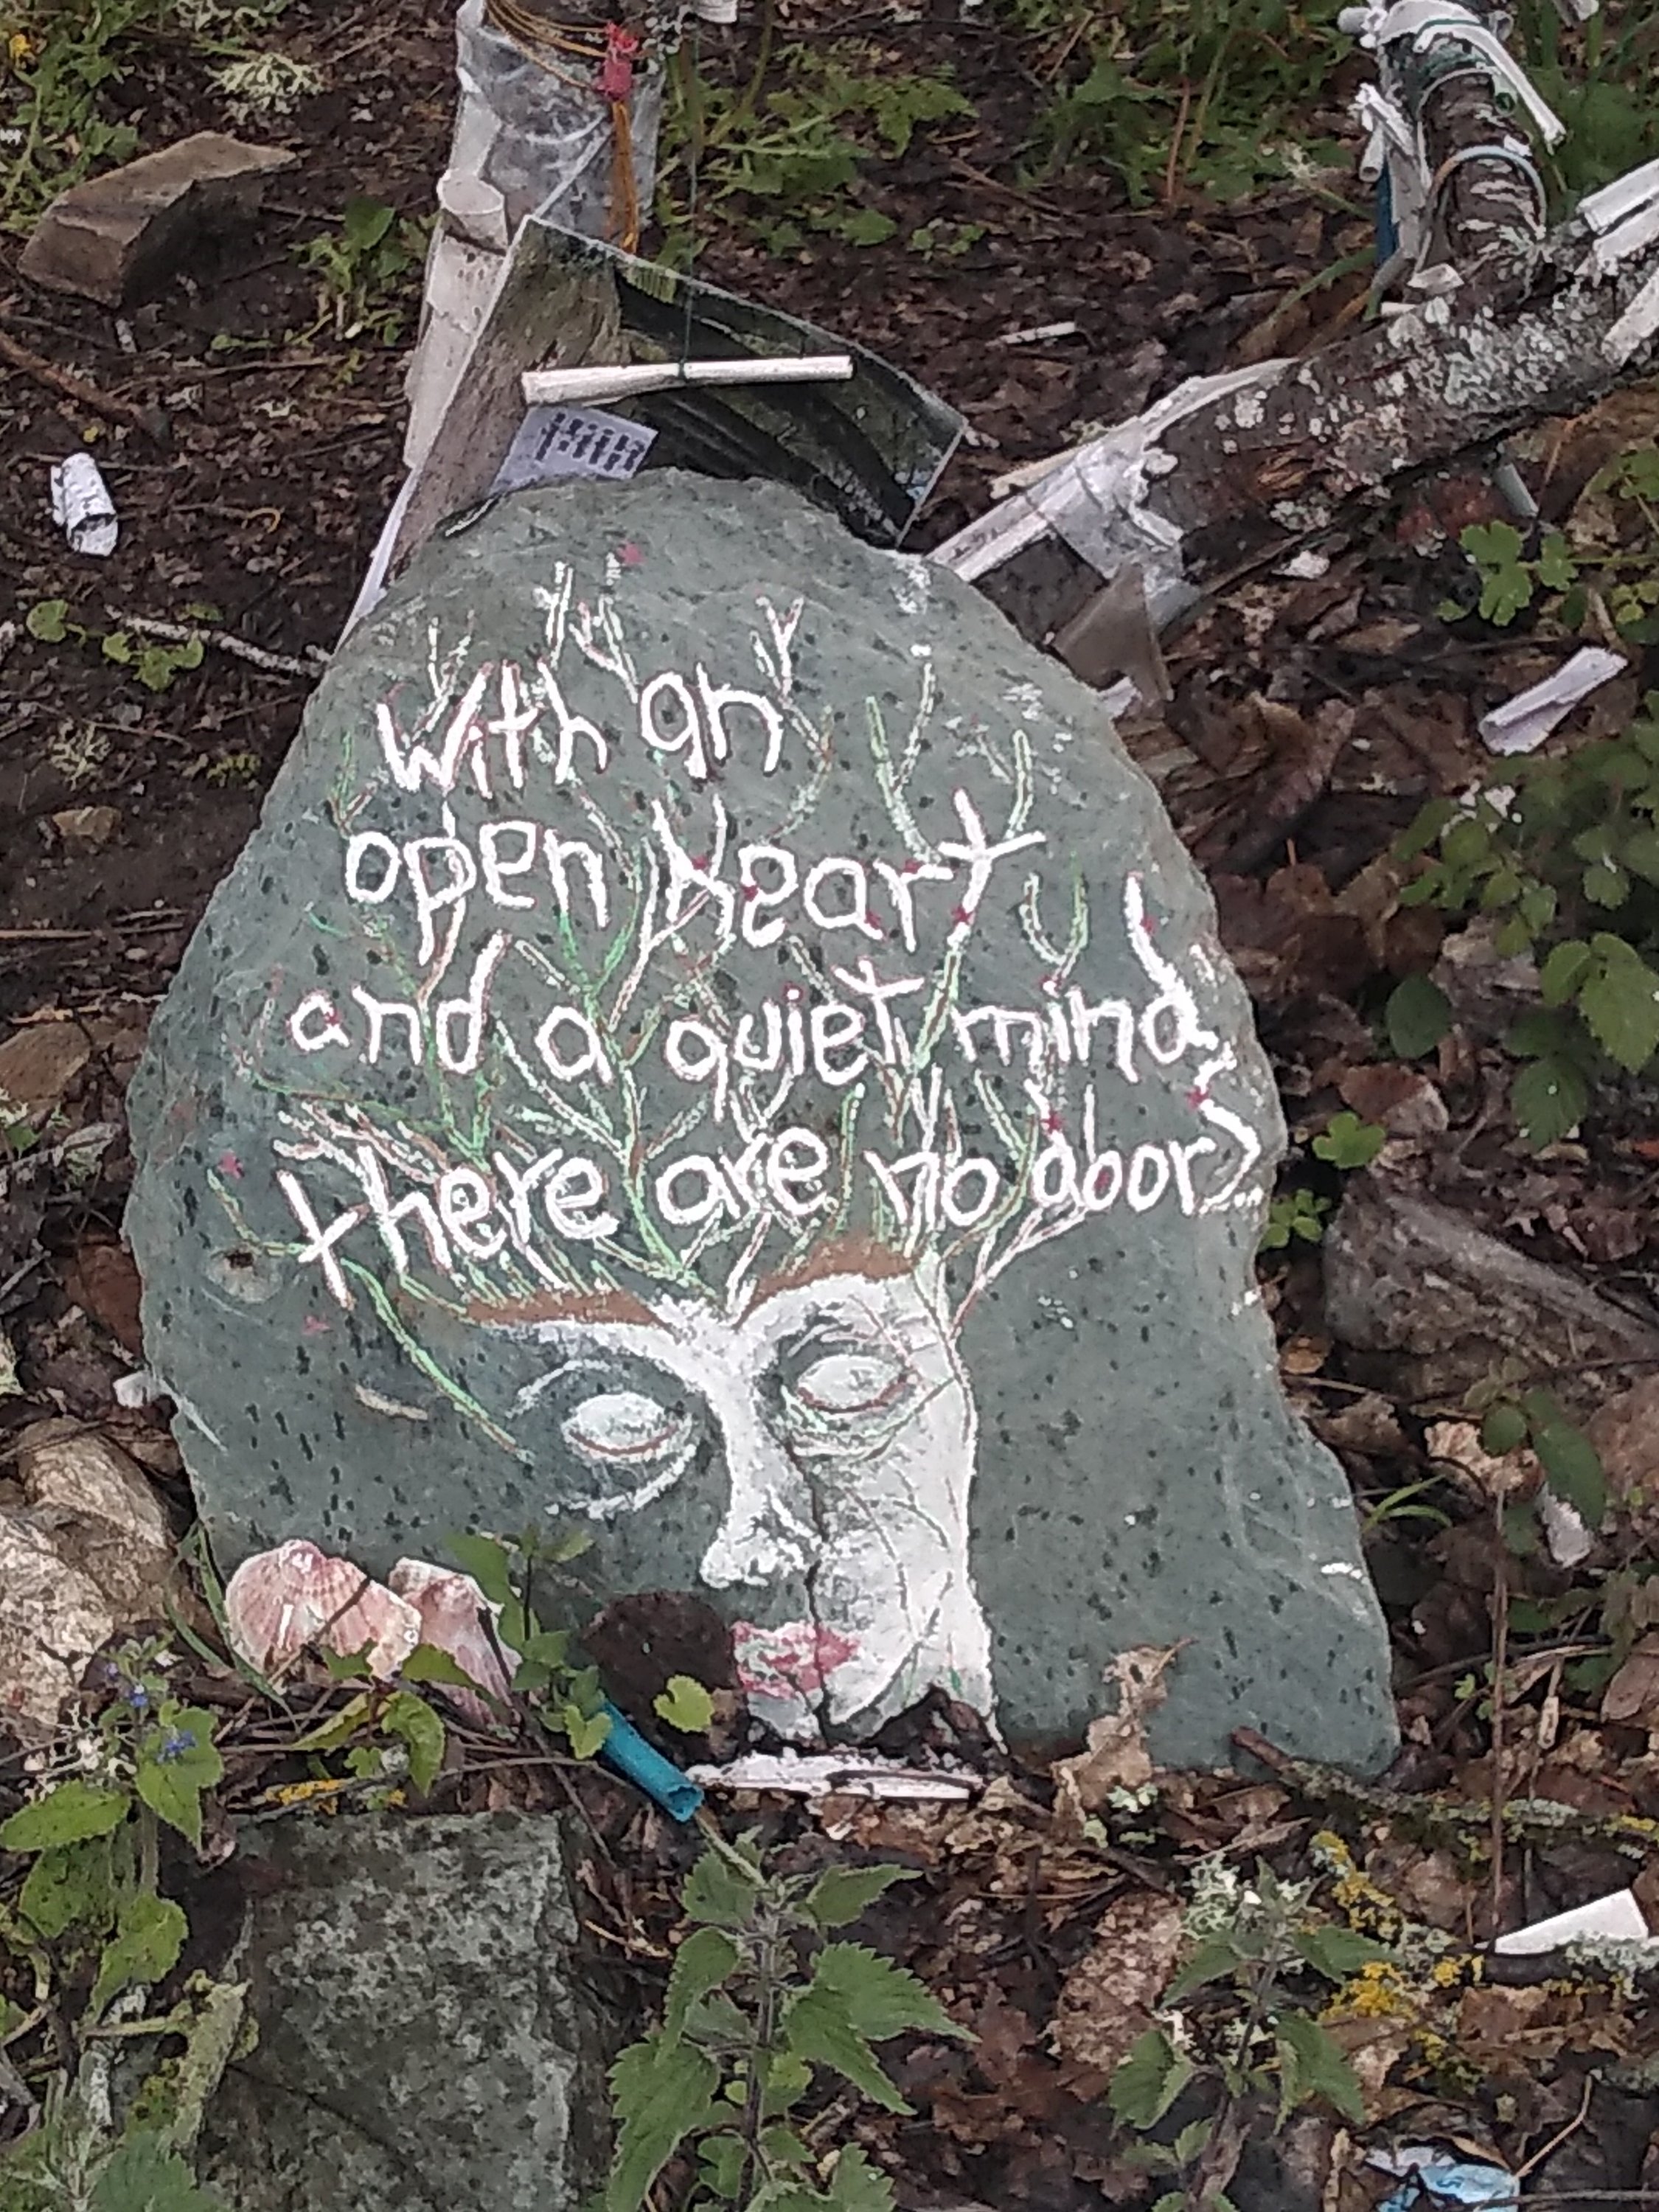 With an
open heart
and a quiet mind,
there are no doors